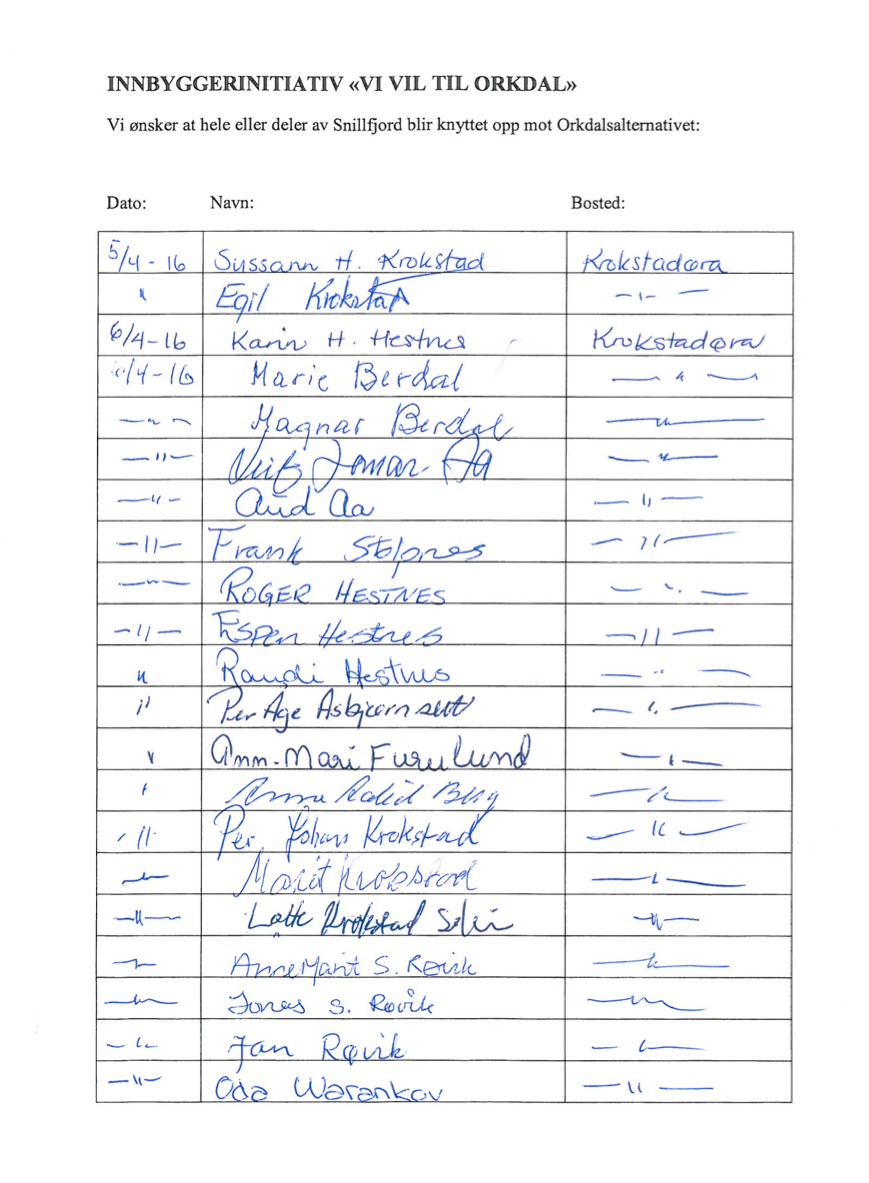 INNBYGGERINITIATIV «VI VIL TIL ORKDAL»
Vi ønsker at hele eller deler av Snillfjord blir knyttet opp mot Orkdalsalternativet:
Dato: Navn: Bosted:
5/4-16 Sussann H. Krokstad Krokstadøra
" Egil Krokstad —"—
6/4-16 Karin H. Hestnes Krokstadøra
6/4-16 Marie Berdal —"—
—"— Magnar Berdal —"—
—"— Jomar Aa —"—
—"— Aud Aa —"—
—"— Frank Stølpnes —"—
—"— ROGER HESTNES —"—
—"— Espen Hestnes —"—
" Randi Hestnes —"—
" Per Åge Asbjørnslett —"—
" Ann-Mari Furulund —"—
" Anna Berg —"—
" Per Johan Krokstad —"—
—"— Marit Krokstad —"—
—"— Lotte Krokstad —"—
—"— Anne Marit S. Røvik —"—
—"— Jonas S. Røvik —"—
—"— Jan Røvik —"—
—"— Oda Warankov —"—